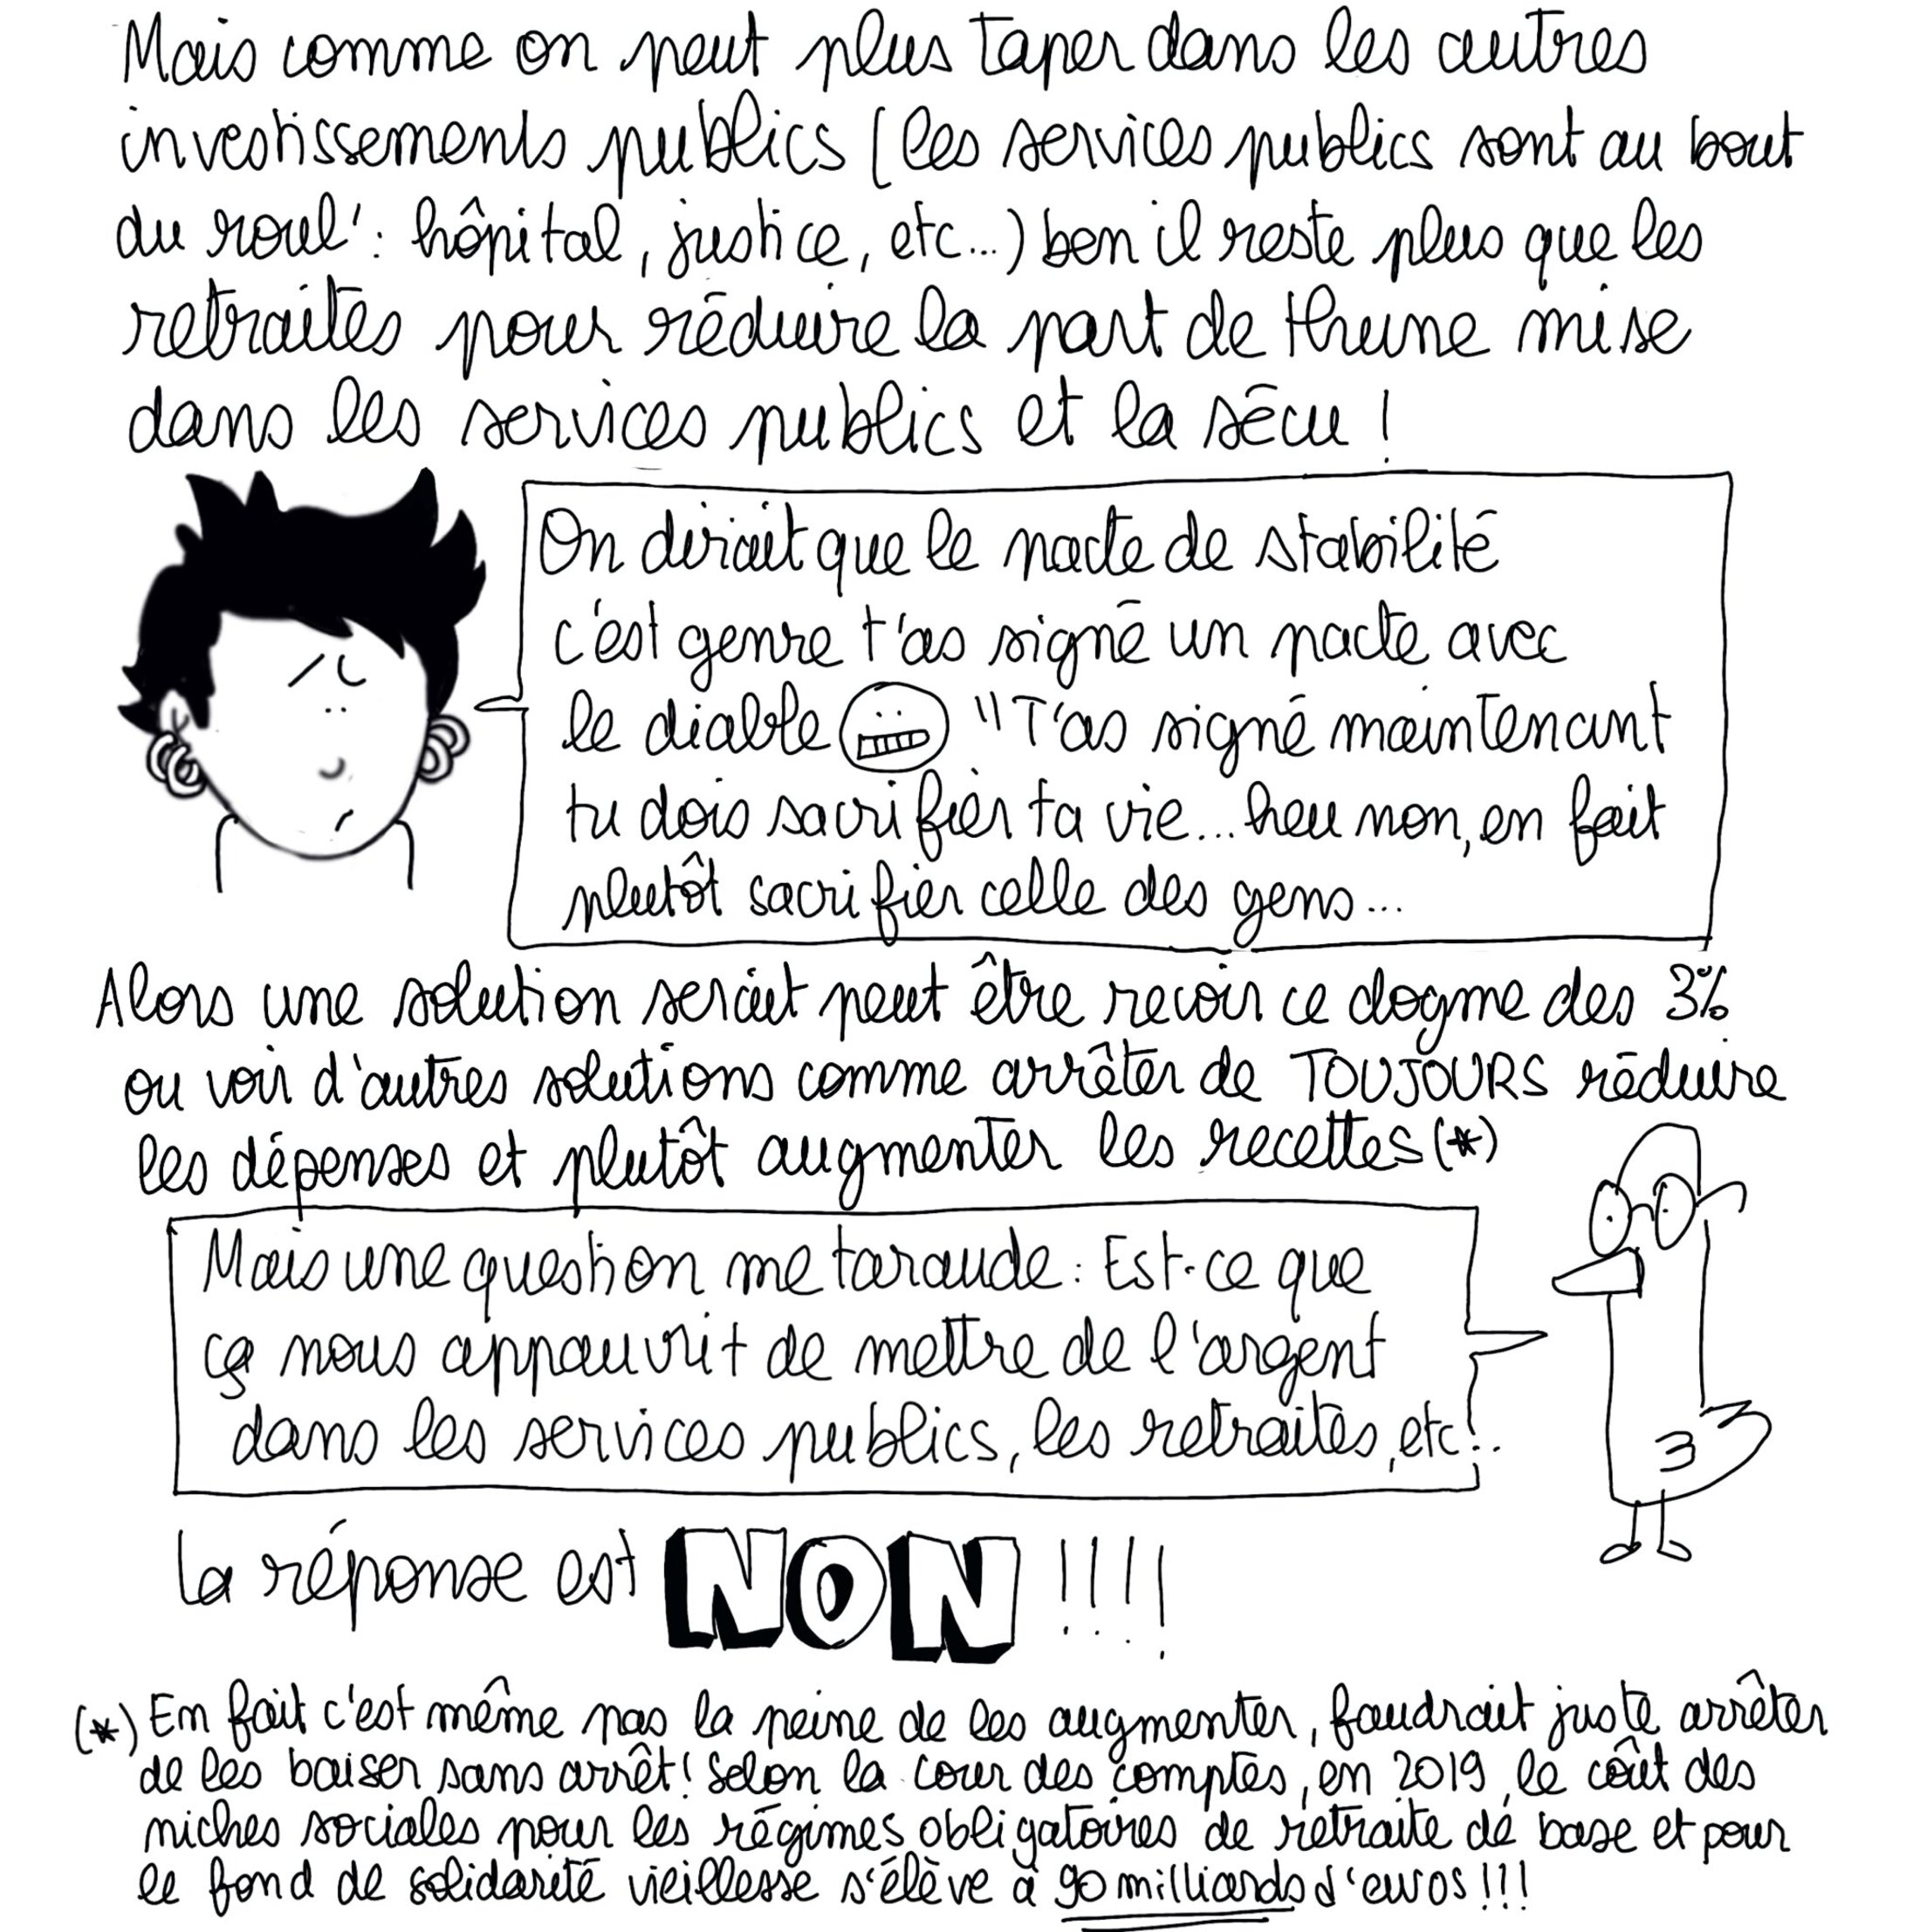 Mais comme on peut plus taper dans les autres
investissements publics (les services publics sont au bout
du roul' : hôpital, justice, etc...) ben il reste plus que les
retraites pour réduire la part de thune mise
dans les services publics et la sécu !
On dirait que le pacte de stabilité
c'est genre t'as signé un pacte avec
le diable "T'as signé maintenant
tu dois sacrifier ta vie... heu non, en fait
plutôt sacrifier celle des gens...
Alors une solution serait peut être revoir ce dogme des 3%
ou voir d'autres solutions comme arrêter de TOUJOURS réduire
les dépenses et plutôt augmenter les recettes (*)
Mais une question me taraude : Est-ce que
ça nous appauvrit de mettre de l'argent
dans les services publics, les retraites, etc !..
la réponse est NON !!!!
(*) En fait c'est même pas la peine de les augmenter, faudrait juste arrêter
de les baiser sans arrêt ! Selon la cour des comptes, en 2019, le coût des
niches sociales pour les régimes obligatoires de retraite de base et pour
le fond de solidarité vieillesse s'élève à 90 milliards d'euros !!!